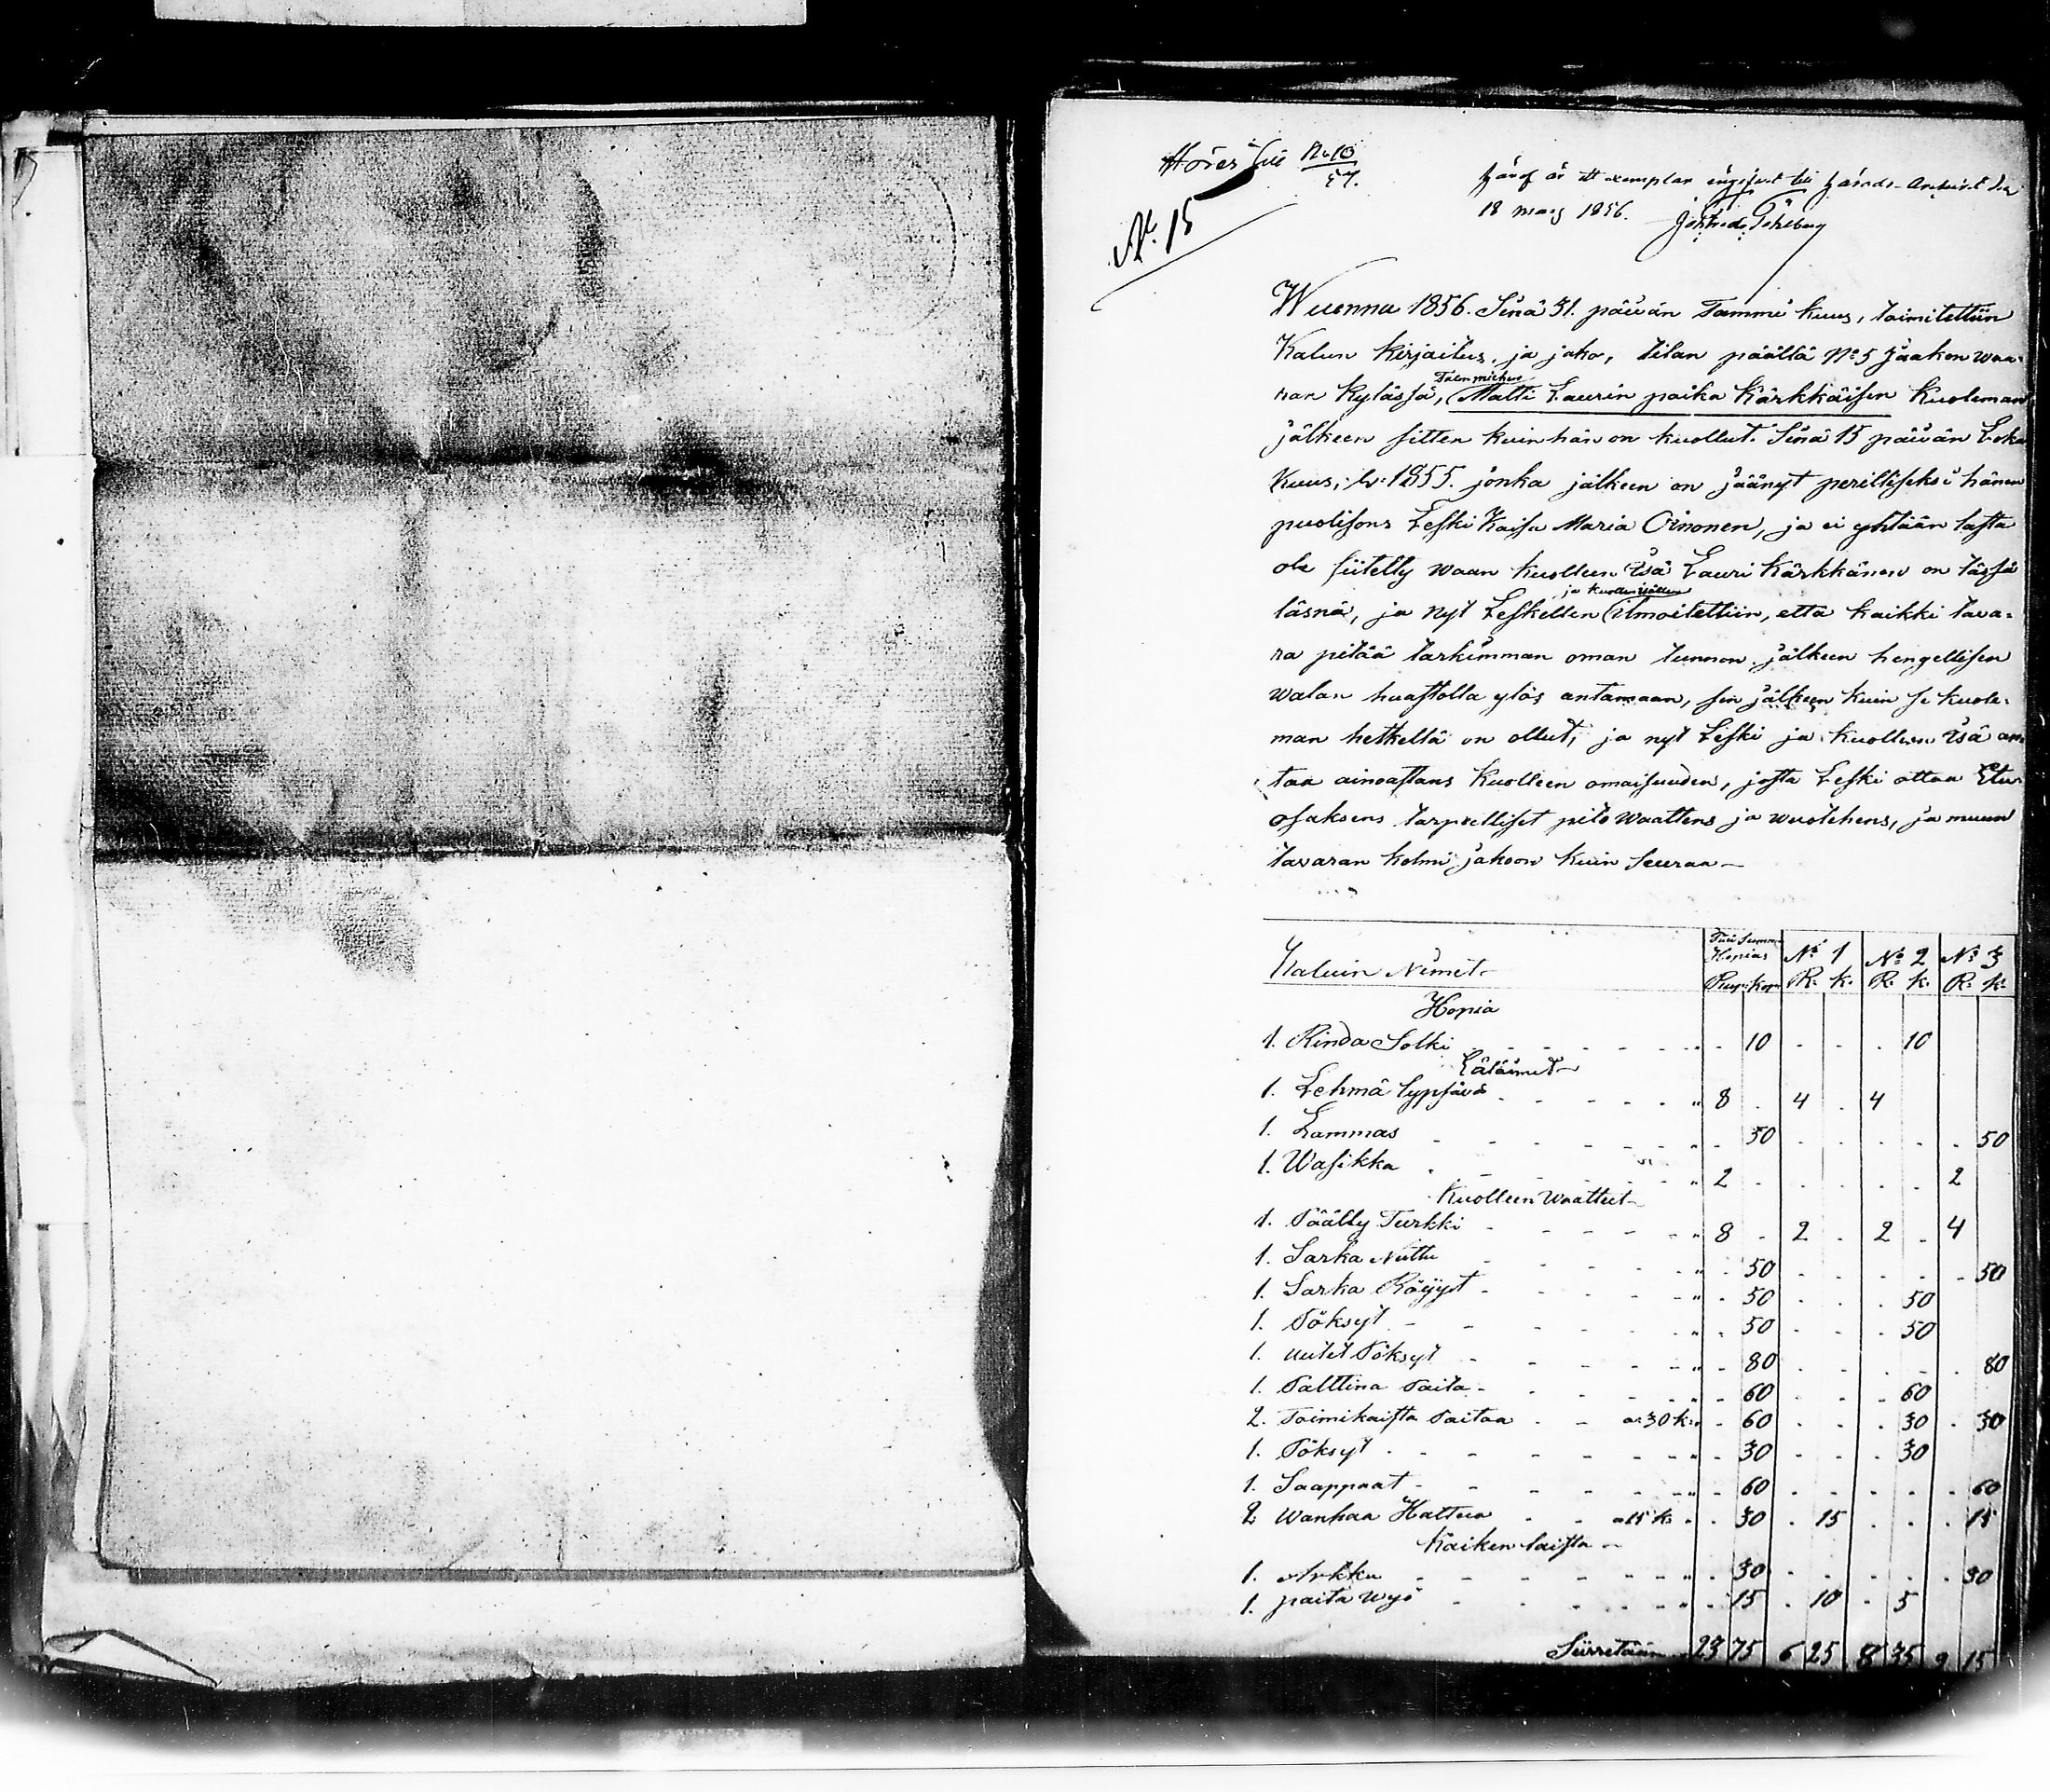 Hörer till No 10
57.
No. 15
Häraf är ett exemplar ingifvet till Härads-Archivet den
18 Mars 1856.
Wuonna 1856. Sinä 31. päivän Tammi kuus, toimitettiin
Kalun kirjoitus, ja jako, tilan päällä No 5 Jaakon waa-
ran kylässä, Talon miehen Matti Laurin poika Kärkkäisen kuoleman
jälkeen sitten kuin hän on kuollut. Sinä 15 päivän Loka
kuus, w: 1855. jonka jälkeen on jäänyt perilliseksi hänen
puolisons Leski Kaisa Maria Oinonen, ja ei yhtään lasta
ole siitetty waan kuolleen Isä Lauri Kärkkänen on tässä
läsnä, ja nyt Leskellen ja kuolleen isällen ilmoitettiin, että kaikki tava-
ra pitää tarkimman oman tunnon jälkeen hengellisen
walan huastolla ylös antamaan, sen jälkeen kuin se kuole-
man hetkellä on ollut; ja nyt Leski ja kuolleen Isä an-
taa ainoastans kuolleen omaisuuden, josta Leski ottaa Etu-
osaksens tarpeelliset pito waattens ja wuotehens, ja muun
tavaran kolmi jakoon kuin seuraa
Kaluin Nimet Hopias No 1 No 2 No 3
Rup: Kop: R. k. R. k. R. k.
Hopia
1. Rinda Solki 10 10
Eläimet
1. Lehmä lypsävä 8 4 4
1. Lammas 50 50
1. Wasikka 2 2
Kuolleen Waatteet
1. Päälly Turkki 8 2 2 4
1. Sarka Nuttu 50 50
1. Sarka Röijyt 50 50
1. Pöksyt 50 50
1. uutet Pöksyt 80 80
1. Palttina Paita 60 60
2. Toimikaista Paitaa a 30 k. 60 30 30
1. Pöksyt 30 30
1. Saappaat 60 60
2 Wanhaa Hattua a 15 k. 30 15 15
Kaiken laista
1. Arkku 30 30
1. paita wyö 15 10 5
Siirretään 23 75 6 25 8 35 9 15